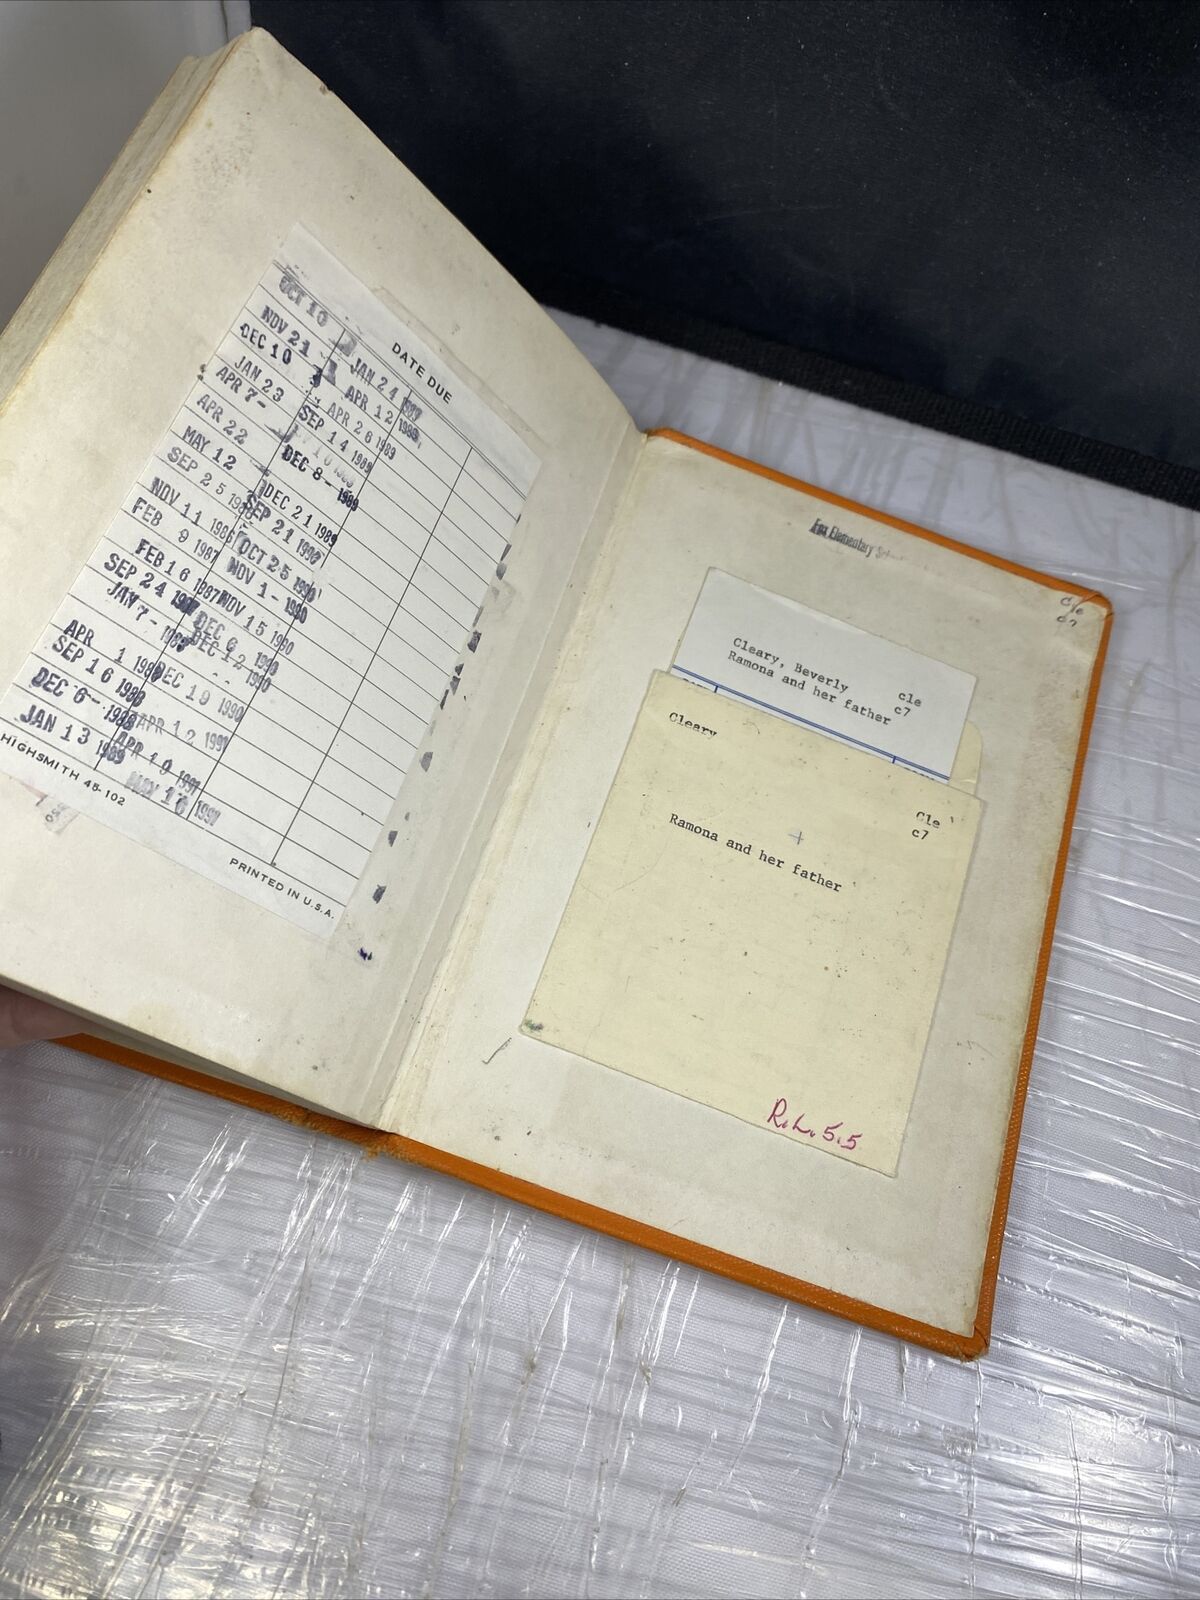 DATE DUE
OCT 10
NOV 21
DEC 10
JAN 23
APR 7-
APR 22
MAY 12
SEP 25
NOV 11 1986
FEB 9 1987
FEB 16 1987
SEP 24
JAN 7-
APR 1
SEP 16 1988
DEC 6-
JAN 13 1989
JAN 24
APR 12 1989
APR 26 1989
SEP 14 1989
DEC 8- 1989
DEC 21 1989
SEP 21 1990
OCT 25 1990
NOV 1- 1990
NOV 15 1990
DEC 6 1990
DEC 12 1990
DEC 19 1990
APR 12 1991
APR 19 1991
MAY 16 1991
HIGHSMITH 45-102
PRINTED IN U.S.A.
Elementary
Cle
c7
Cleary, Beverly cle
Ramona and her father c7
Cleary
Cle
c7
Ramona and her father
R.L. 5.5